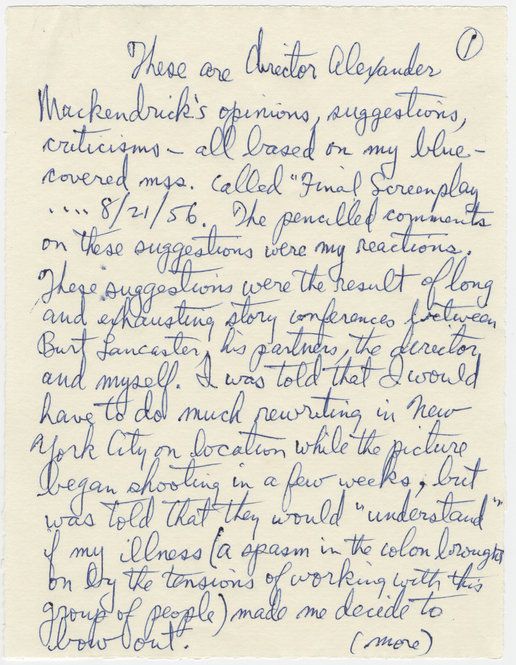 ①
These are director Alexander
Mackendrick's opinions, suggestions,
criticisms – all based on my blue-
covered mss. called "Final Screenplay
.... 8/21/56. The pencilled comments
on these suggestions were my reactions.
These suggestions were the result of long
and exhausting story conferences between
Burt Lancaster, his partners, the director
and myself. I was told that I would
have to do much rewriting in New
York City on location while the picture
began shooting in a few weeks, but
was told that they would "understand"
if my illness (a spasm in the colon brought
on by the tensions of working with this
group of people) made me decide to
bow out.
(more)